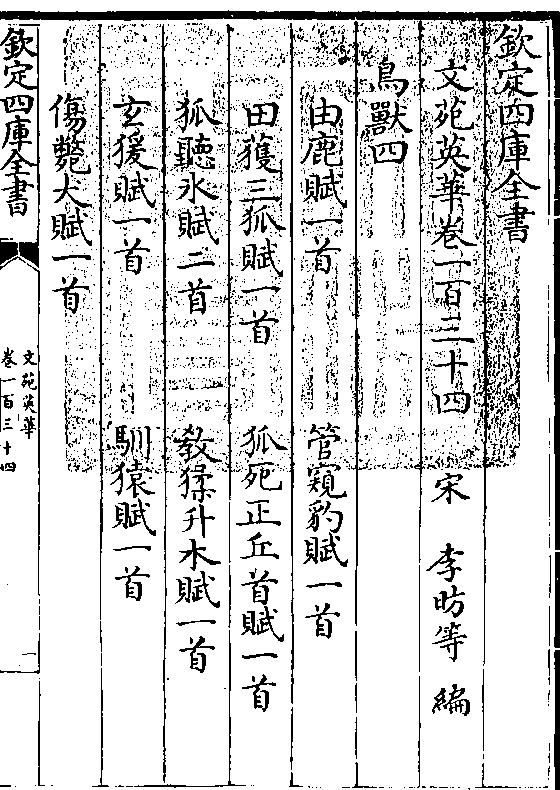 欽定四庫全書
文苑英華卷一百三十四
宋 李昉等 編
鳥獸四
由鹿賦一首 管窺豹賦一首
田獲三狐賦一首 狐死正丘首賦一首
狐聽氷賦二首 敎猱升木賦一首
玄猨賦一首 馴猿賦一首
傷斃犬賦一首
欽定四庫全書
文苑英華
卷一百三十四
一